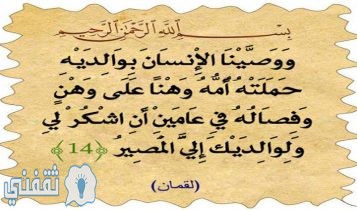 بِسْمِ ٱللَّهِ ٱلرَّحْمَٰنِ ٱلرَّحِيمِ
وَوَصَّيْنَا الإِنسَانَ بِوَالِدَيْهِ
حَمَلَتْهُ أُمُّهُ وَهْنًا عَلَى وَهْنٍ
وَفِصَالُهُ فِي عَامَيْنِ أَنِ اشْكُرْ لِي
وَلِوَالِدَيْكَ إِلَيَّ الْمَصِيرُ ﴿14﴾
(لقمان)
ثقفني